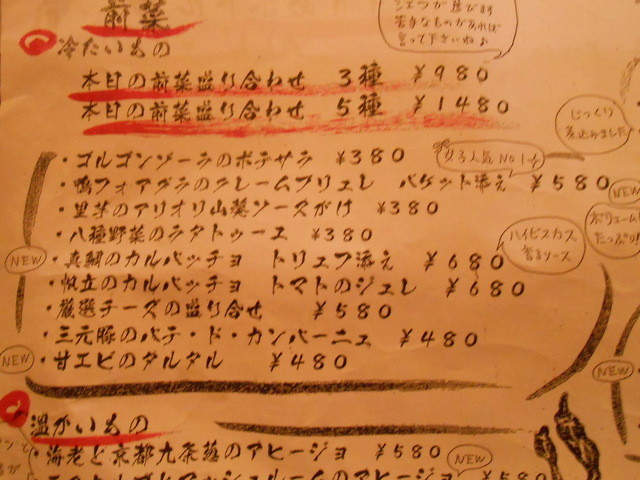 前菜
シェフが選びます
苦手なものがあれば
言って下さいね♪
冷たいもの
本日の前菜盛り合わせ 3種 ¥980
本日の前菜盛り合わせ 5種 ¥1480
じっくり
煮込みました
・ゴルゴンゾーラのポテサラ ¥380
女子人気No1
・鴨フォアグラのクレームブリュレ バゲット添え ¥580
NEW
・里芋のアリオリ山葵ソースがけ ¥380
ボリューム
たっぷり!
・八種野菜のラタトゥーユ ¥380
ハイビスカス
香るソース
NEW
・真鯛のカルパッチョ トリュフ添え ¥680
・帆立のカルパッチョ トマトのジュレ ¥680
・厳選チーズの盛り合せ ¥580
・三元豚のパテ・ド・カンパーニュ ¥480
NEW
・甘エビのタルタル ¥480
NEW
温かいもの
・海老と京都九条葱のアヒージョ ¥580
NEW
ルームのアヒージョ ¥580